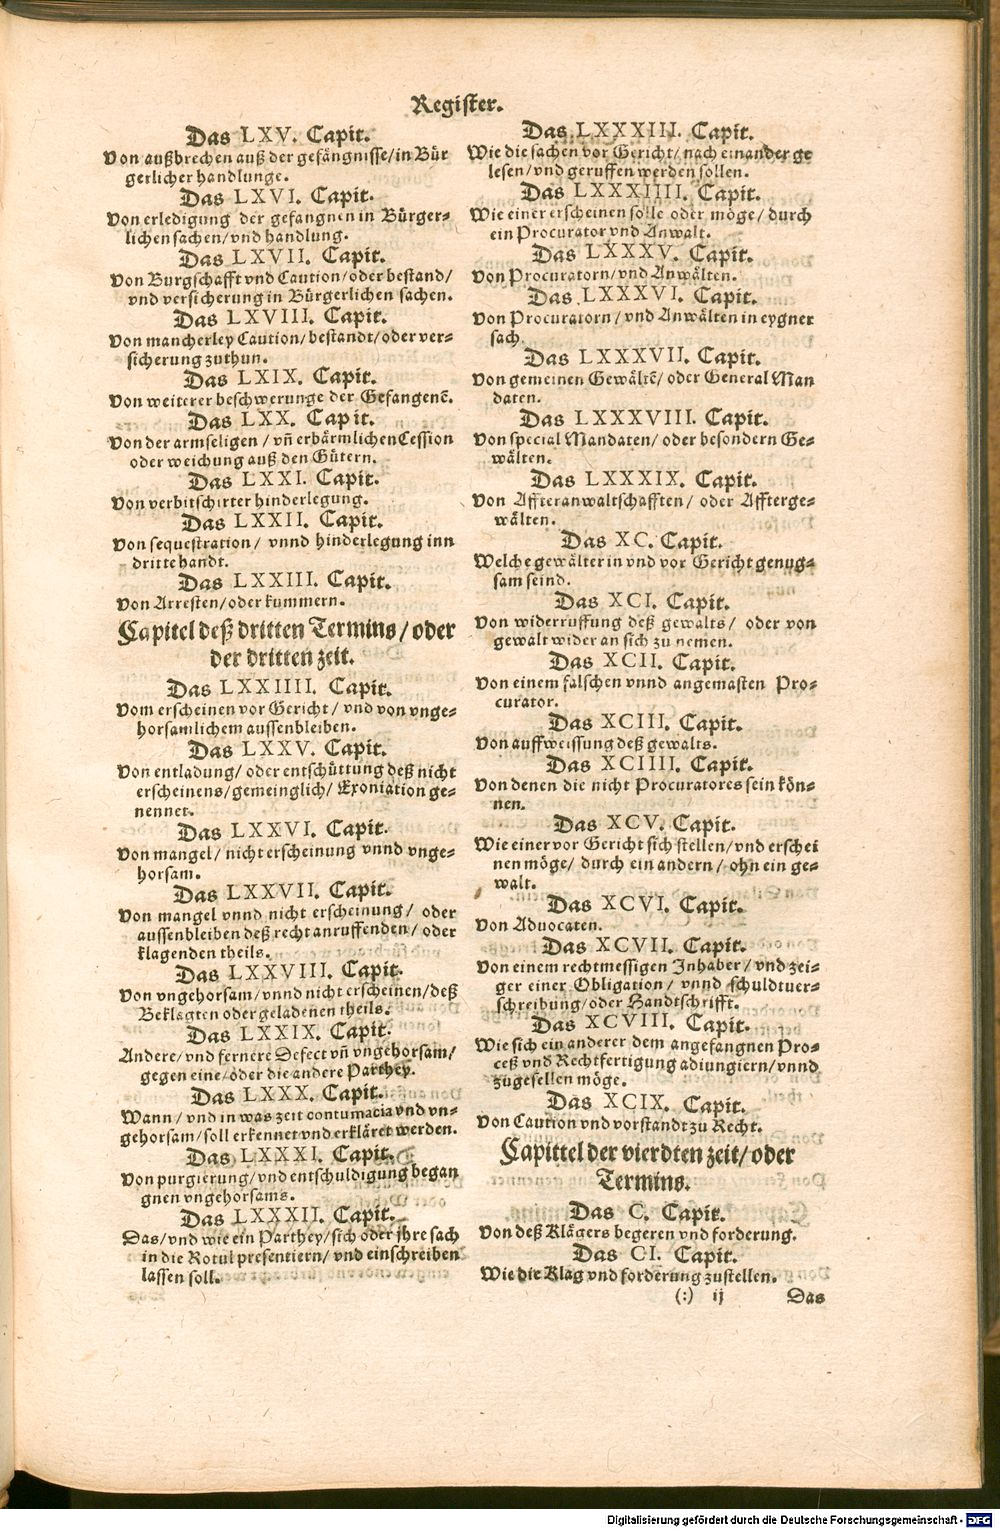 Register.
Das LXV. Capit.
Von außbrechen auß der gefängnisse/in Bür
gerlicher handlunge.
Das LXVI. Capit.
Von erledigung der gefangnen in Bürger-
lichen sachen/vnd handlung.
Das LXVII. Capit.
Von Burgschafft vnd Caution/oder bestand/
vnd versicherung in Bürgerlichen sachen.
Das LXVIII. Capit.
Von mancherley Caution/bestandt/oder ver-
sicherung zuthun.
Das LXIX. Capit.
Von weiterer beschwerunge der Gefangenẽ.
Das LXX. Capit.
Von der armseligen / vñ erbärmlichen Cession
oder weichung auß den Gütern.
Das LXXI. Capit.
Von verbitschirter hinderlegung.
Das LXXII. Capit.
Von sequestration/ vnnd hinderlegung inn
dritte handt.
Das LXXIII. Capit.
Von Arresten/oder kummern.
Capitel deß dritten Termins/oder
der dritten zeit.
Das LXXIIII. Capit.
Vom erscheinen vor Gericht/ vnd von vnge-
horsamlichem aussenbleiben.
Das LXXV. Capit.
Von entladung/ oder entschüttung deß nicht
erscheinens/gemeinglich/ Exoniation ge-
nennet.
Das LXXVI. Capit.
Von mangel/ nicht erscheinung vnnd vnge-
horsam.
Das LXXVII. Capit.
Von mangel vnnd nicht erscheinung/ oder
aussenbleiben deß recht anruffenden/ oder
klagenden theils.
Das LXXVIII. Capit.
Von vngehorsam/vnnd nicht erscheinen/deß
Beklagten oder geladenen theils.
Das LXXIX. Capit.
Andere/vnd fernere Defect vñ vngehorsam/
gegen eine/oder die andere Parthey.
Das LXXX. Capit.
Wann/ vnd in was zeit contumacia vnd vn-
gehorsam/soll erkennet vnd erkläret werden.
Das LXXXI. Capit.
Von purgierung/vnd entschuldigung began
gnen vngehorsams.
Das LXXXII. Capit.
Das/vnd wie ein Parthey/sich oder jhre sach
in die Rotul presentiern/ vnd einschreiben
lassen soll.
Das LXXXIII. Capit.
Wie die sachen vor Gericht/ nach einander ge
lesen/vnd geruffen werden sollen.
Das LXXXIIII. Capit.
Wie einer erscheinen solle oder möge/ durch
ein Procurator vnd Anwalt.
Das LXXXV. Capit.
Von Procuratorn/vnd Anwälten.
Das LXXXVI. Capit.
Von Procuratorn/ vnd Anwälten in eygner
sach.
Das LXXXVII. Capit.
Von gemeinen Gewältẽ/ oder General Man
daten.
Das LXXXVIII. Capit.
Von special Mandaten/ oder besondern Ge-
wälten.
Das LXXXIX. Capit.
Von Affteranwaltschafften/ oder Affterge-
wälten.
Das XC. Capit.
Welche gewälter in vnd vor Gericht genug-
sam seind.
Das XCI. Capit.
Von widerruffung deß gewalts/ oder von
gewalt wider an sich zu nemen.
Das XCII. Capit.
Von einem falschen vnnd angemasten Pro-
curator.
Das XCIII. Capit.
Von auffweissung deß gewalts.
Das XCIIII. Capit.
Von denen die nicht Procuratores sein kön-
nen.
Das XCV. Capit.
Wie einer vor Gericht sich stellen/vnd erschei
nen möge/ durch ein andern/ ohn ein ge-
walt.
Das XCVI. Capit.
Von Aduocaten.
Das XCVII. Capit.
Von einem rechtmessigen Inhaber/ vnd zei-
ger einer Obligation/ vnnd schuldtuer-
schreibung/oder Handtschrifft.
Das XCVIII. Capit.
Wie sich ein anderer dem angefangnen Pro-
ceß vnd Rechtfertigung adiungiern/vnnd
zugesellen möge.
Das XCIX. Capit.
Von Caution vnd vorstandt zu Recht.
Capittel der vierdten zeit/ oder
Termins.
Das C. Capit.
Von deß Klägers begeren vnd forderung.
Das CI. Capit.
Wie die Klag vnd forderung zustellen.
(:) ij Das
Digitalisierung gefördert durch die Deutsche Forschungsgemeinschaft - DFG